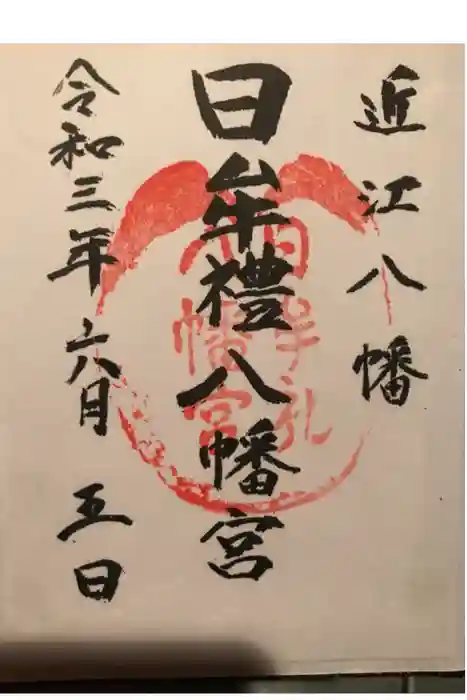 近江八幡
日牟禮八幡宮
日牟礼
八幡宮
令和三年六月五日